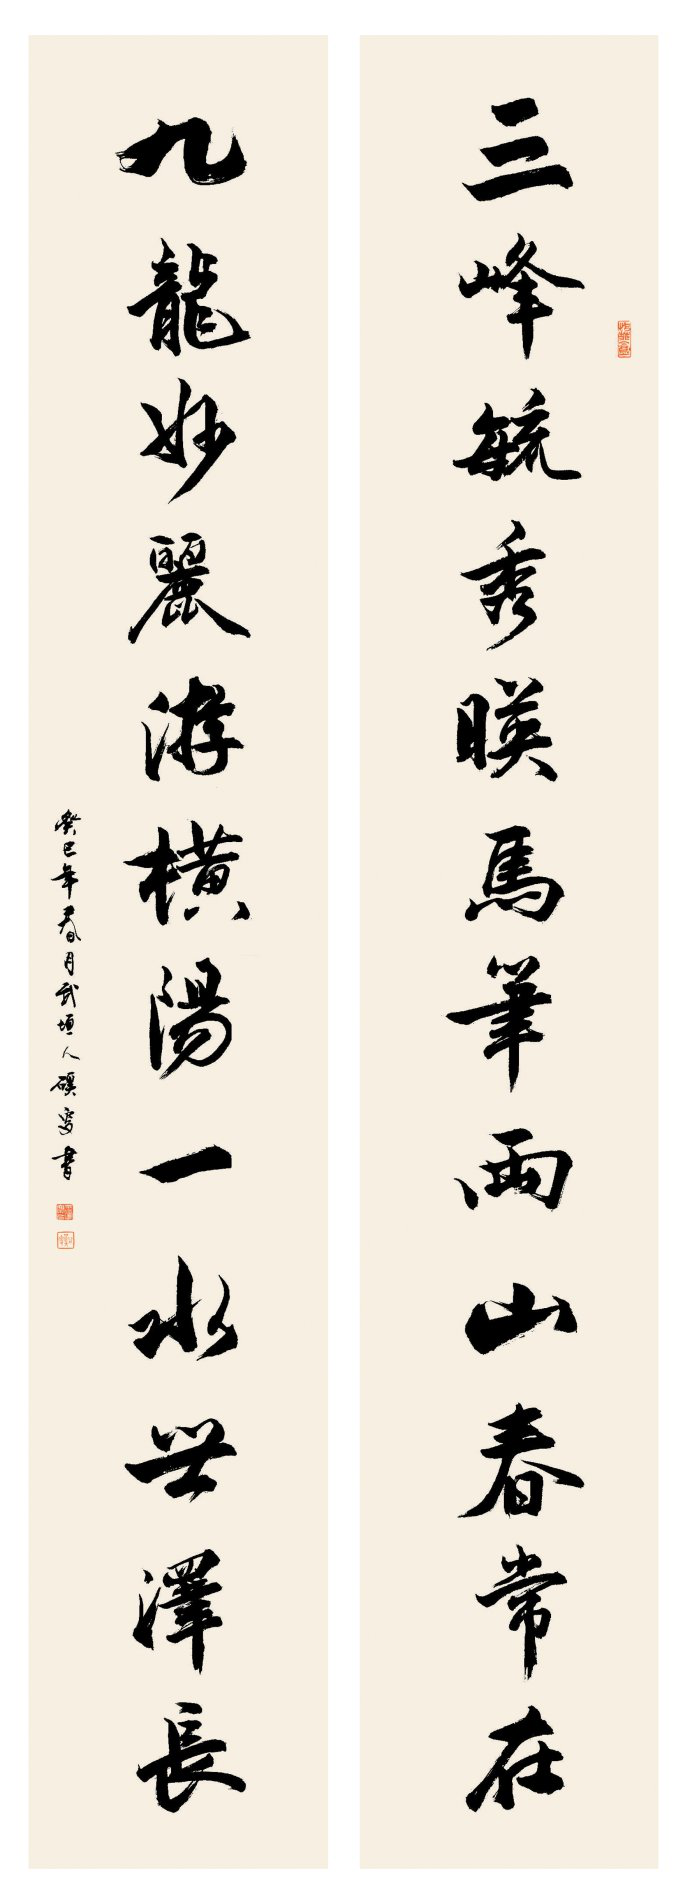 三峰毓秀暎馬筆兩山春常在
九龍妙麗游橫陽一水世澤長
癸巳年春月武垣人碩寧書